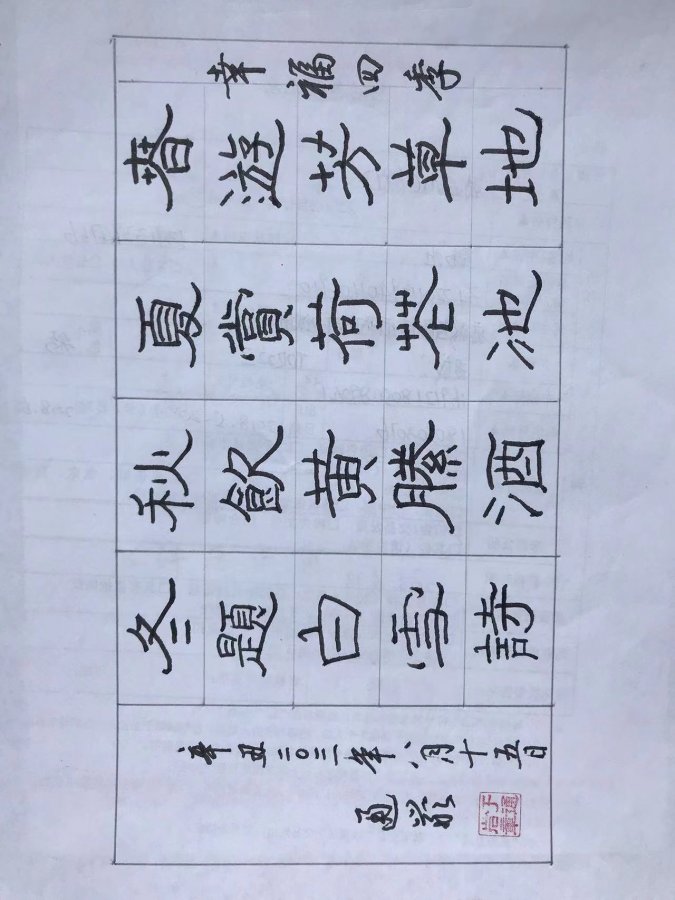 幸福四季
春遊芳草地
夏賞荷芲池
秋飲黄縢酒
冬題白雪詩
辛丑二〇二一年八月十五日